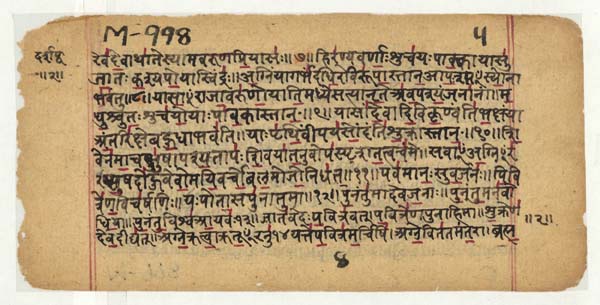 M-998
५
॥२॥
हिरण्यवर्णाःशुचयःपावकायासु
जातःकश्यपोयास्विंद्रः॥अग्निंयागर्भंदधिरेविरूपास्तानआपःशꣳस्योना
भवंतु॥८॥यासाꣳराजावरुणोयातिमध्येसत्यानृतेअवपश्यंजनानां॥म
धुश्चुतःशुचयोयाःपावकास्तानः॥९॥यासांदेवादिविकृण्वंतिभक्षंया
अंतरिक्षेबहुधाभवंति॥याःपृथिवींपयसोंदंतिशुक्रास्तानः॥१०॥शि
वेनमाचक्षुषापश्यतापःशिवयातनुवोपस्पृशतत्वचंमे॥सर्वाꣳअग्नीꣳर
प्सुषदोहुवेवोमयिवर्चोबलमोजोनिधत्त॥११॥पवमानःसुवर्जनः॥पवि
त्रेणविचर्षणिः॥यःपोतासपुनातुमा॥१२॥पुनंतुमादेवजनाः॥पुनंतुमनवो
धिया॥पुनंतुविश्वआयवः१३॥जातवेदःपवित्रवत्॥पवित्रेणपुनाहिमा॥शुक्रेण
देवदीद्यत्॥अग्नेक्रत्वाक्रतूꣳरनु१४यत्तेपवित्रमर्चिषि॥अग्नेविततमंतरा॥ब्रह्म
॥२॥
४